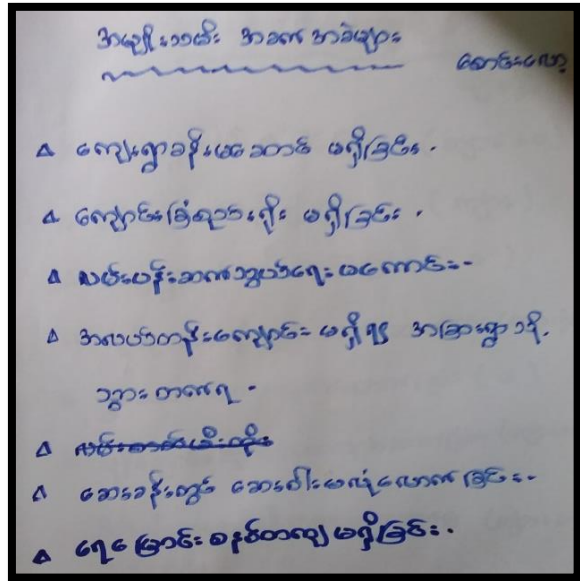 အမျိုးသမီး အခက်အခဲများ
စောင်းလော့
∆ ကျေးရွာခန်းမဆောင် မရှိခြင်း.
∆ ကျောင်းခြံစည်းရိုး မရှိခြင်း.
∆ လမ်းပန်းဆက်သွယ်ရေး မကောင်း.
∆ အလယ်တန်းကျောင်း မရှိ၍ အခြားရွာသို့
သွား တက်ရ.
∆
∆ ဆေးခန်းတွင် ဆေးဝါးမလုံလောက်ခြင်း.
∆ ရေမြောင်းစနစ်တကျ မရှိခြင်း.